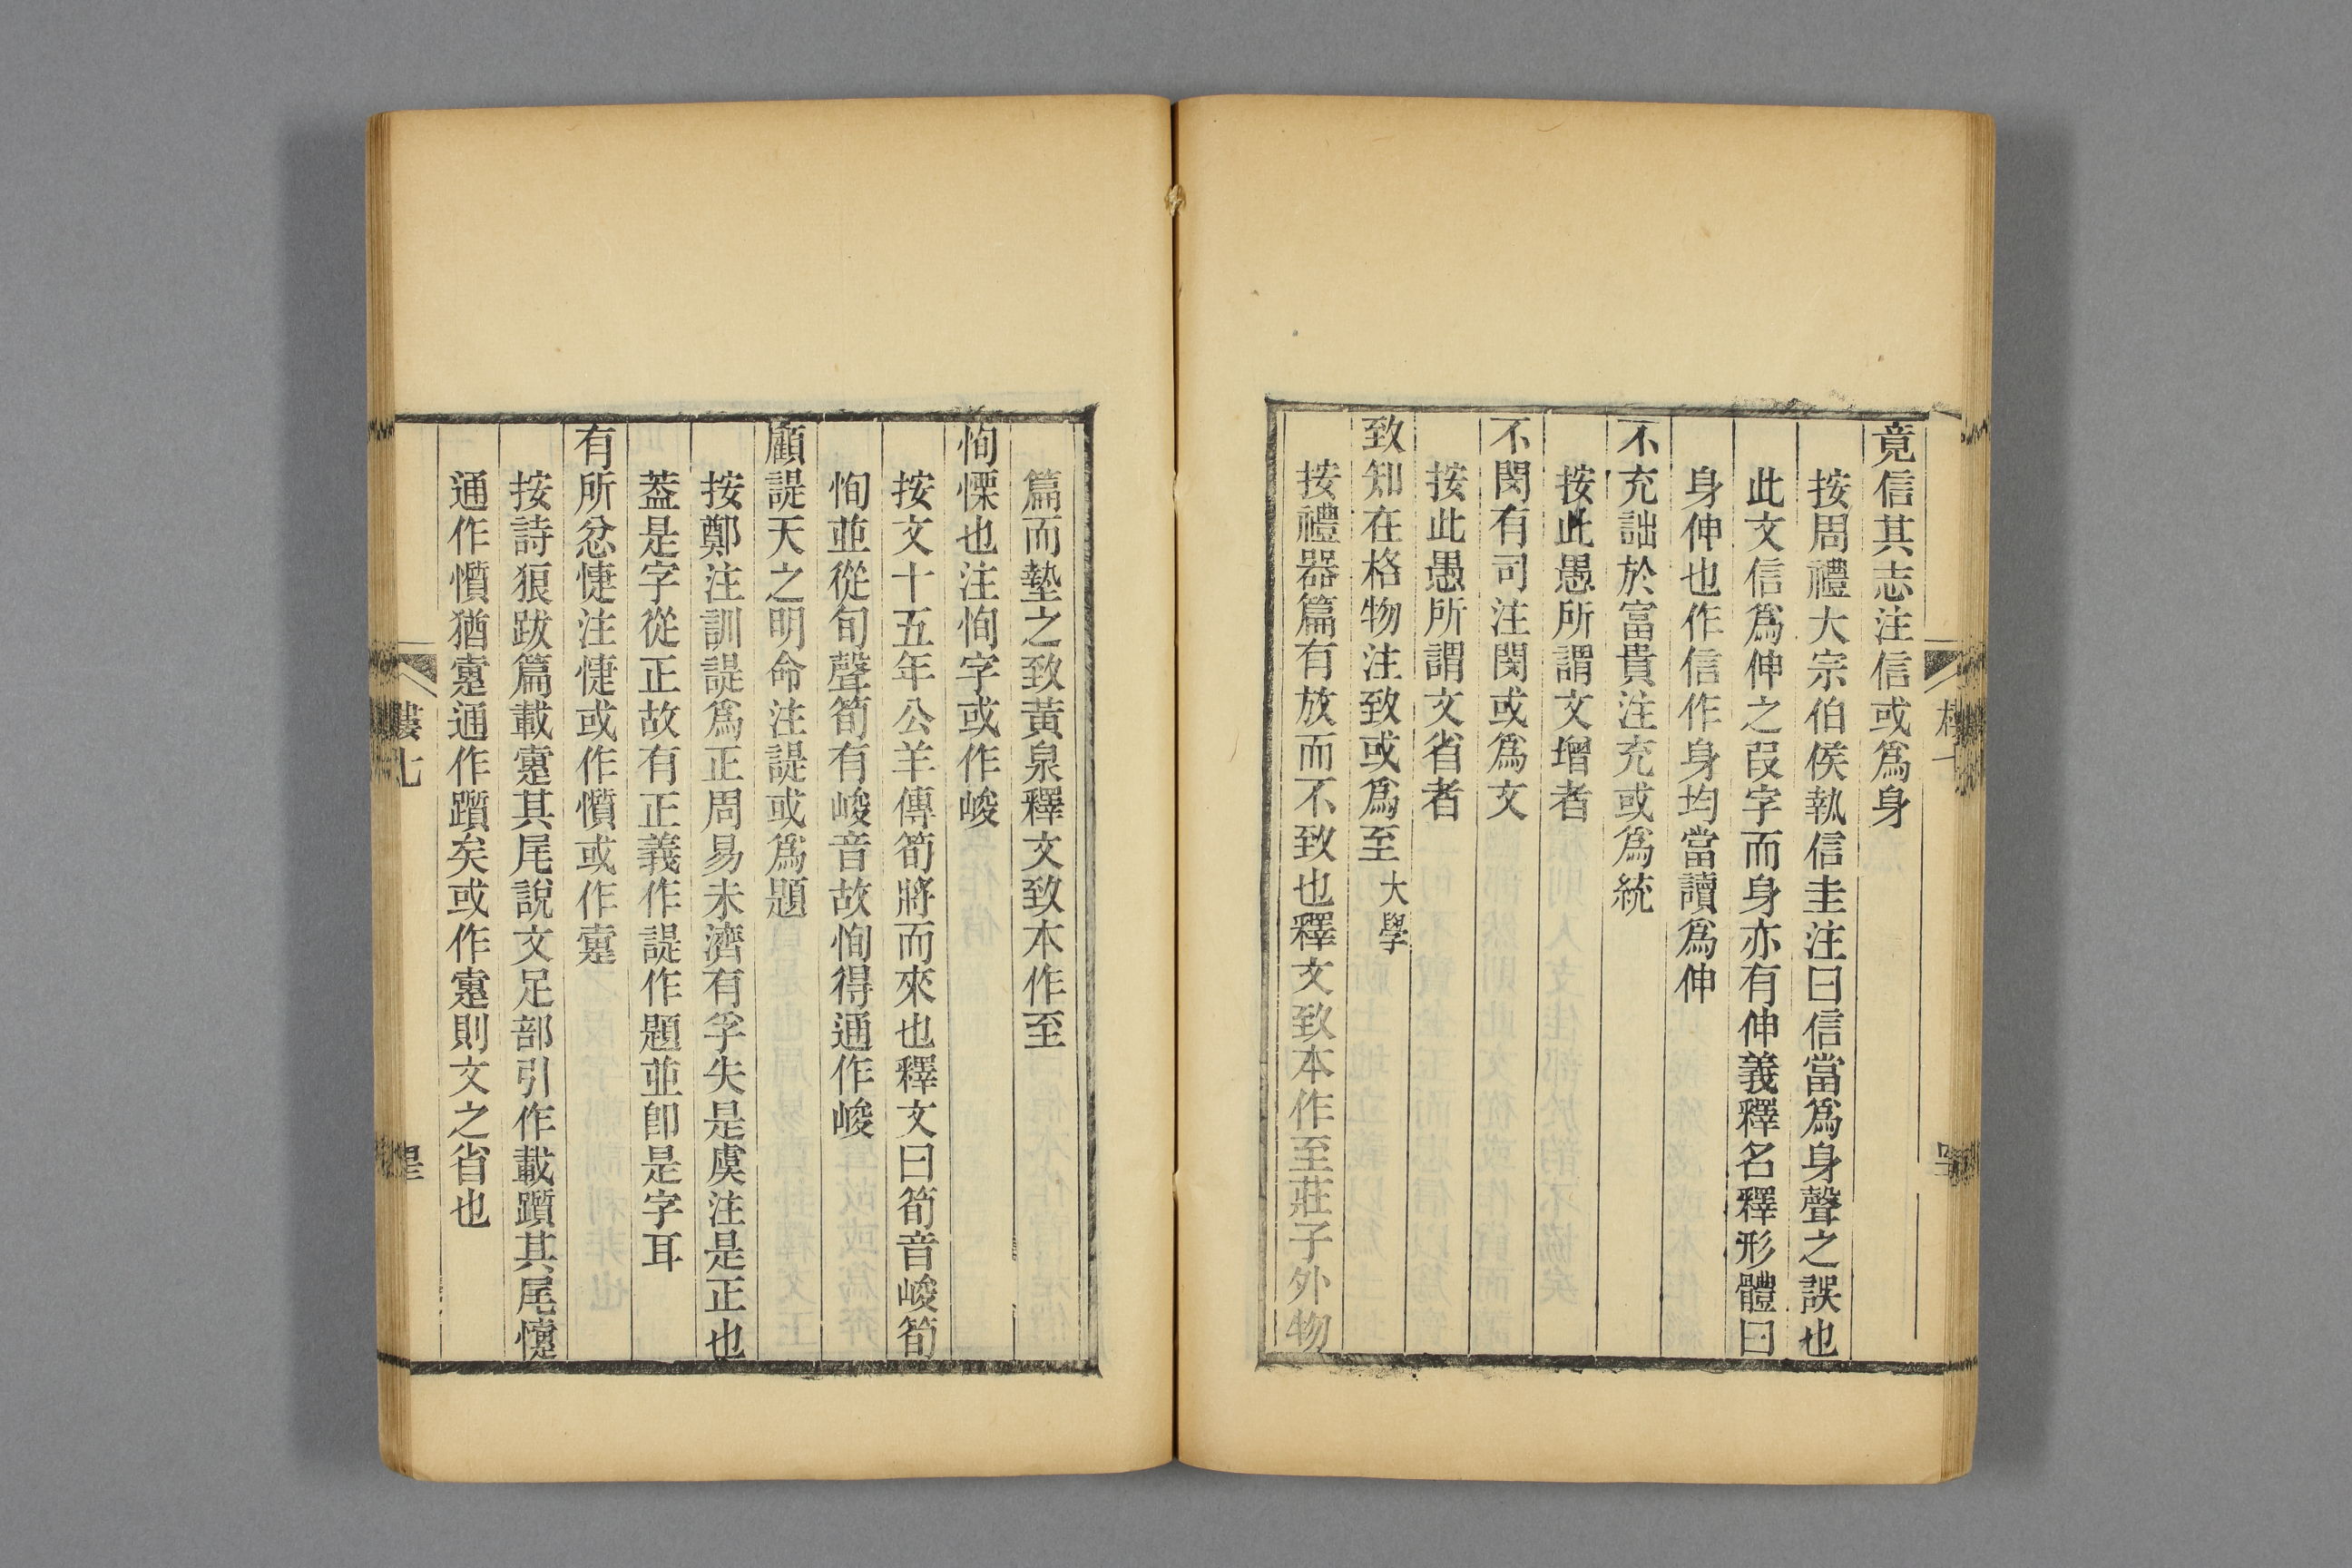 竟信其志注信或爲身
按周禮大宗伯侯執信圭注曰信當爲身聲之誤也
此文信爲伸之叚字而身亦有伸義釋名釋形體曰
身伸也作信作身均當讀爲伸
不充詘於富貴注充或爲統
按此愚所謂文增者
不閔有司注閔或爲文
按此愚所謂文省者
致知在格物注致或爲至大學
按禮器篇有放而不致也釋文致本作至莊子外物
篇而墊之致黃泉釋文致本作至
恂慄也注恂字或作峻
按文十五年公羊傳筍將而來也釋文曰筍音峻筍
恂並從旬聲筍有峻音故恂得通作峻
顧諟天之明命注諟或爲題
按鄭注訓諟爲正周易未濟有孚失是虞注是正也
葢是字從正故有正義作諟作題並卽是字耳
有所忿懥注懥或作懫或作疐
按詩狼跋篇載疐其尾說文足部引作載躓其尾懥
通作懫猶疐通作躓矣或作疐則文之省也